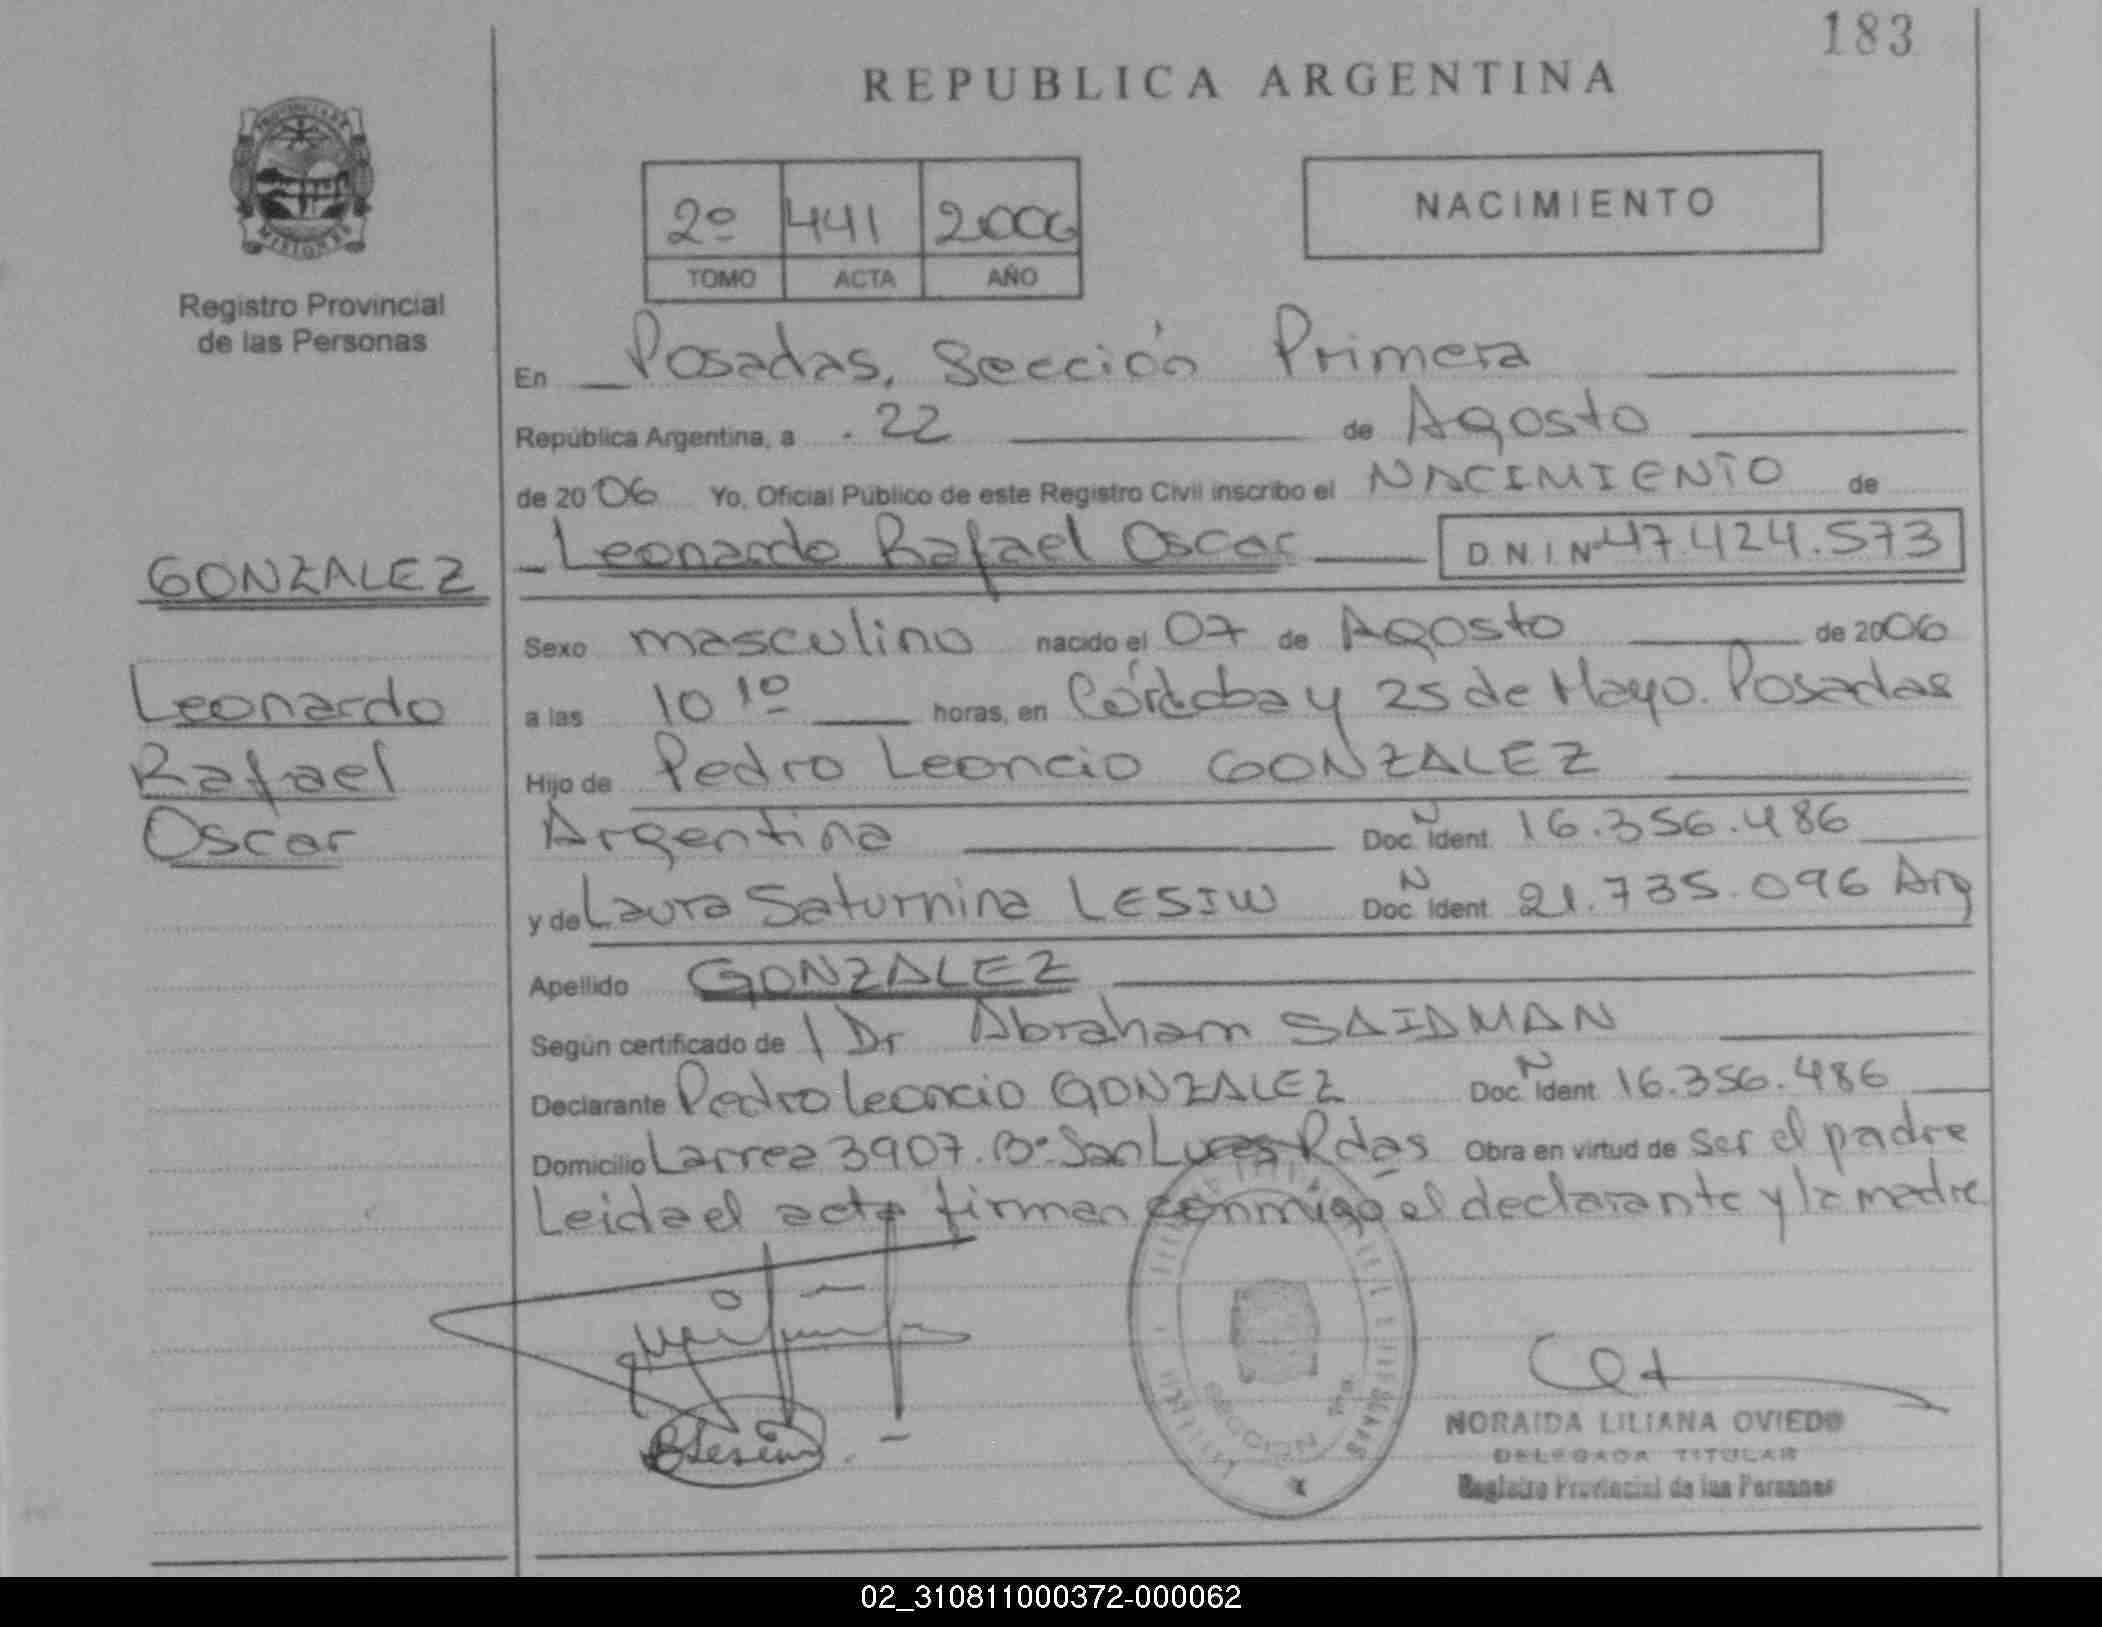 183
REPUBLICA ARGENTINA
PROVINCIA DE
MISIONES
Registro Provincial
de las Personas
2º 441 2006
TOMO ACTA AÑO
NACIMIENTO
En Posadas, Sección Primera
República Argentina, a 22 de Agosto
de 2006 Yo, Oficial Público de este Registro Civil inscribo el NACIMIENTO de
Leonardo Rafael Oscar D.N.I Nº 47.424.573
GONZALEZ
Leonardo
Rafael
Oscar
Sexo masculino nacido el 07 de Agosto de 2006
a las 10 10 horas, en Córdoba y 25 de Mayo. Posadas
Hijo de Pedro Leoncio GONZALEZ
Argentina Doc. Ident. N 16.356.486
y de Laura Saturnina LESIW Doc. Ident. N 21.735.096 Arg
Apellido GONZALEZ
Según certificado de / Dr Abraham SAIDMAN
Declarante Pedro Leoncio GONZALEZ Doc. Ident. N 16.356.486
Domicilio Larrea 3907. Bº San Lucas Pdas Obra en virtud de ser el padre
Leida el acta firman conmigo el declarante y la madre
SECCION 1ra.
POSADAS
NORAIDA LILIANA OVIEDO
DELEGADA TITULAR
Registro Provincial de las Personas
02_310811000372-000062